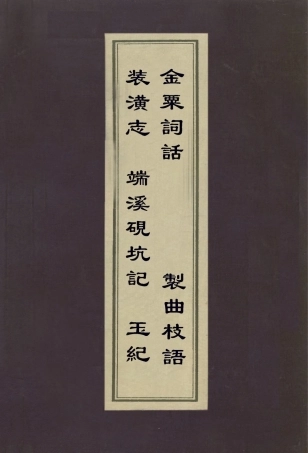 金粟詞話 製曲枝語
裝潢志 端溪硯坑記 玉紀